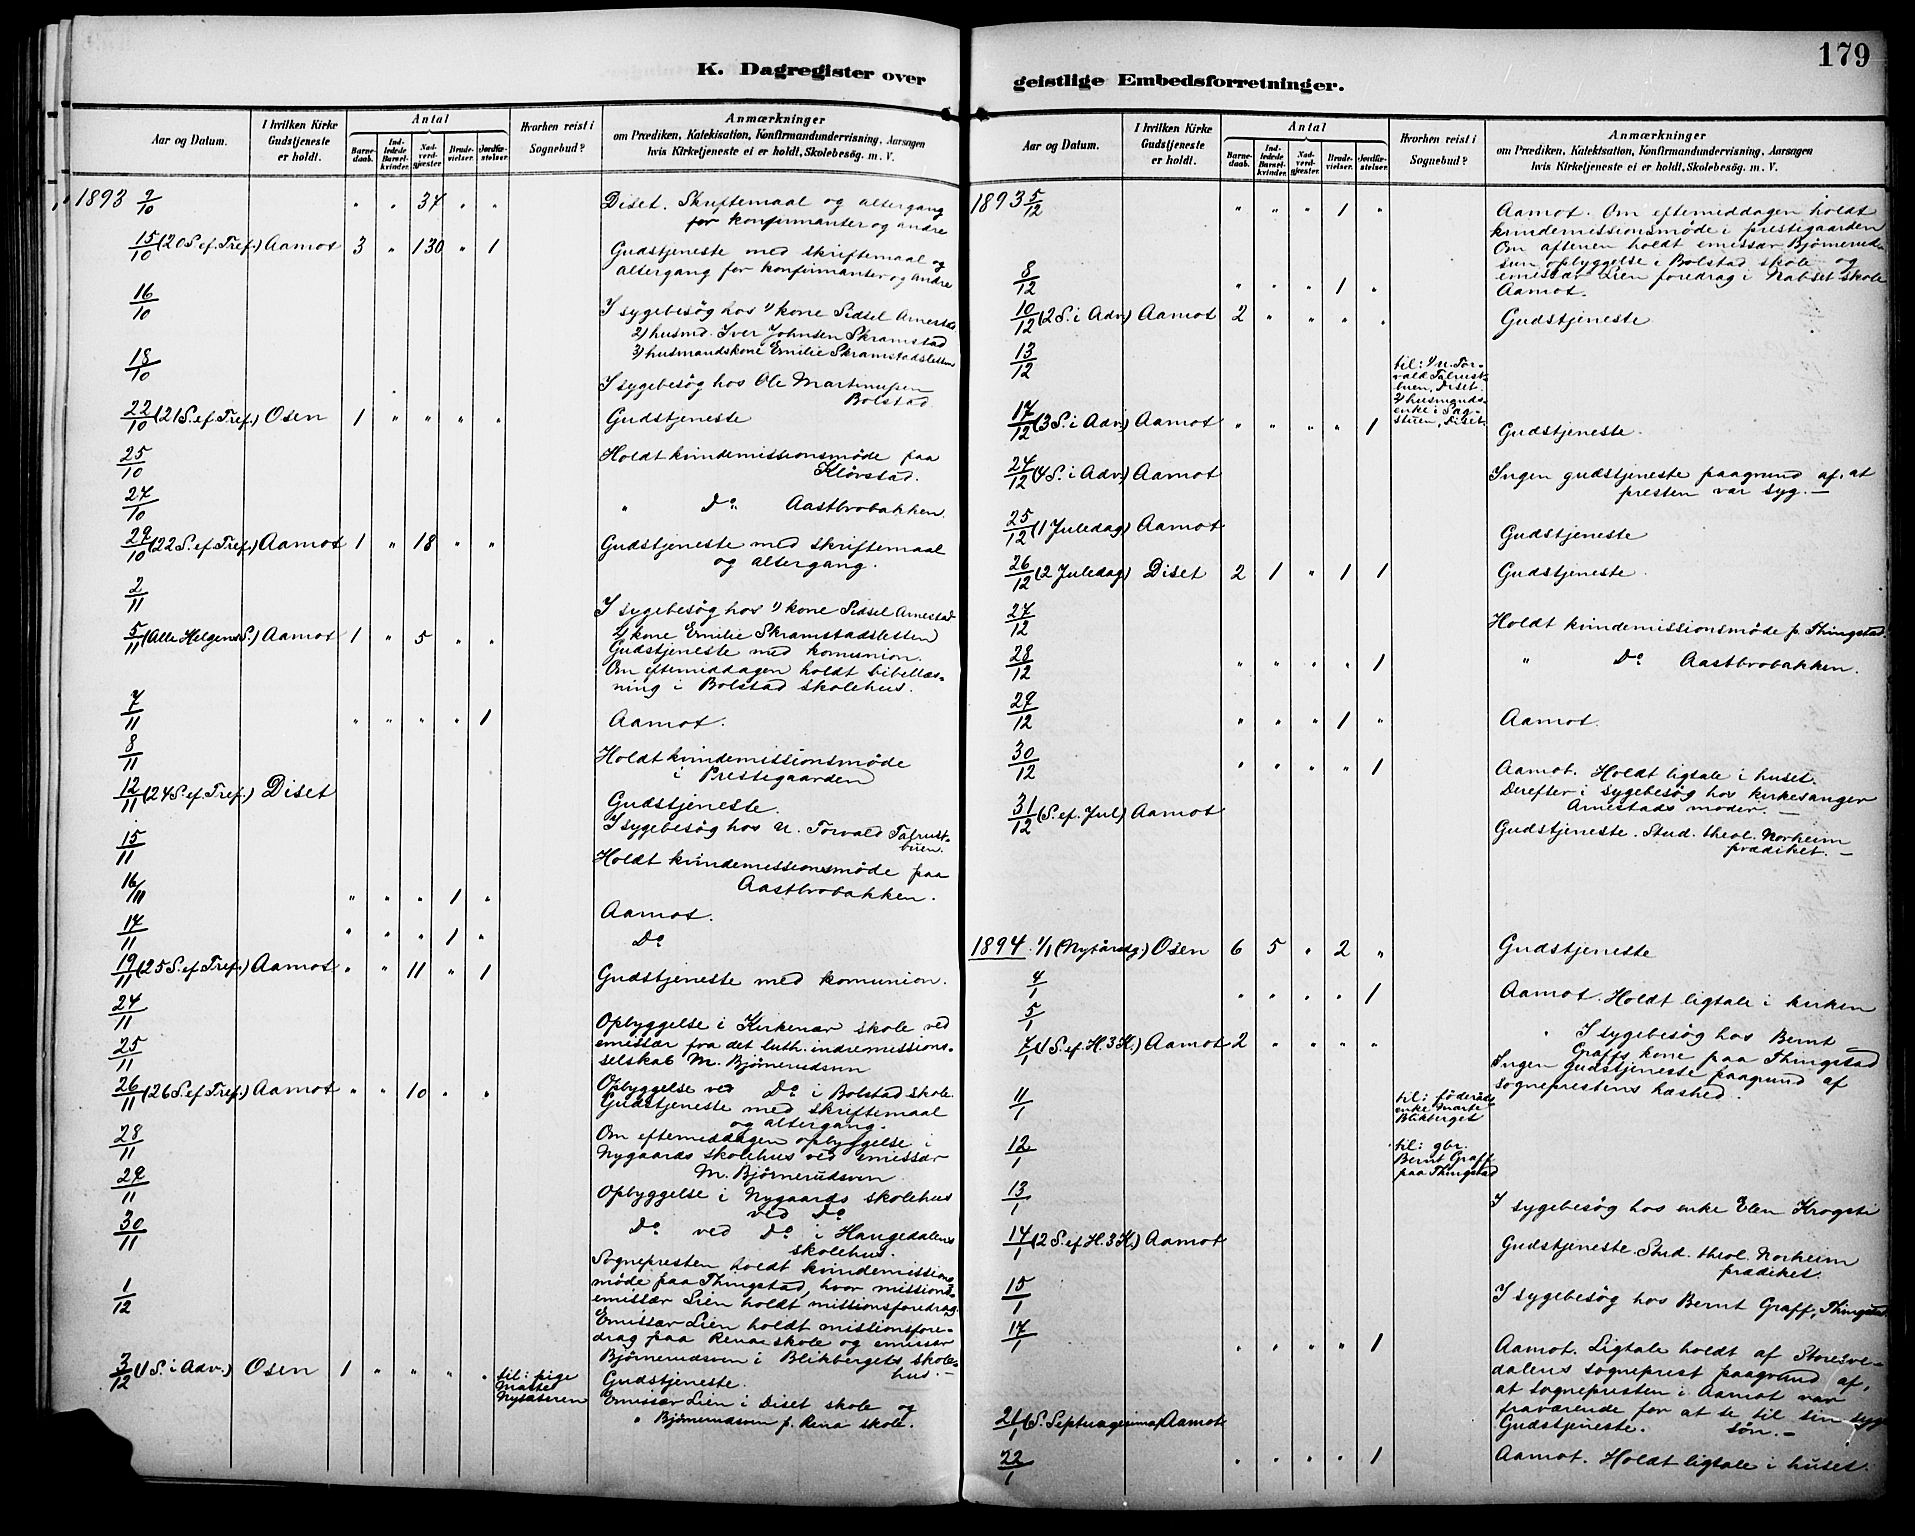 179
K. Dagregister over
Aar og Datum.
I hvilken Kirke Gudstjeneste er holdt.
Antal
Barnedaab.
Indledede Barselkvinder.
Nadverdgjester.
Brudevielser.
Jordfæstelser.
Hvorhen reist i Sognebud?
Anmærkninger
om Prædiken, Katekisation, Konfirmandundervisning, Aarsagen
hvis Kirketjeneste ei er holdt, Skolebesøg. m. V.
1893 9/10 " " 37 " " Diset. Skriftemaal og altergang
for konfirmanter og andre
15/10 (20 S. ef. Tref.) Aamot 3 " 130 " 1 Gudstjeneste med skriftemaal og
altergang for konfirmanter og andre
16/10 I sygebesøg hos 1) kone Sidsel Arnestad
2) husmd. Iver Johnsen Skramstad
3) husmandskone Emilie Skramstadsletten
18/10 I sygebesøg hos Ole Martinusen
Bolstad.
22/10 (21 S. ef. Tref.) Osen 1 " " " " Gudstjeneste
25/10 Holdt kvindemissionsmøde paa
Kløvstad.
27/10 " Do. Aastbrobakken.
29/10 (22 S. ef. Tref.) Aamot 1 " 18 " " Gudstjeneste med skriftemaal
og altergang.
2/11 I sygebesøg hos 1) kone Sidsel Arnestad
2) kone Emilie Skramstadsletten
5/11 (Alle Helgens S.) Aamot 1 " 5 " " Gudstjeneste med komunion.
Om eftemiddagen holdt bibellæs-
ning i Bolstad skolehus.
7/11 " " " " 1 Aamot.
8/11 Holdt kvindemissionsmøde
i Prestegaarden
12/11 (24 S. ef. Tref.) Diset Gudstjeneste.
I sygebesøg hos U. Torvald Talrust-
buen.
15/11 Holdt kvindemissionsmøde paa
Aastbrobakken.
16/11 " " " 1 " Aamot.
17/11 " " " 1 " Do
19/11 (25 S. ef. Tref.) Aamot " " 11 " 1 Gudstjeneste med komunion.
24/11 Opbyggelse i Kirkenær skole ved
emissær fra det luth. indremissions-
selskab M. Bjørnerudsven
25/11 Opbyggelse ved Do i Bolstad skole.
26/11 (26 S. ef Tref.) Aamot " " 10 " " Gudstjeneste med skriftemaal
og altergang.
Om eftemiddagen opbyggelse i
Nygaards skolehus ved emissær
M. Bjørnerudsven
28/11
29/11 Opbyggelse i Nygaards skolehus
ved Do
30/11 Do ved Do i Haugedalens
skolehus.
Sognepresten holdt kvindemissions
møde paa Thingstad, hvor missions-
emissær Lien holdt missionsforedrag.
1/12 Emissær Lien holdt missionsfore-
drag paa Rena skole og emissær
Bjørnerudsven i Blikbergets skole-
hus.
3/12 (1 S. i Adv.) Osen 1 " " " " til: pige
Marte
Nysæteren
Gudstjeneste.
Emissær Lien i Diset skole og
" Bjørnerudsven p. Rena skole.
geistlige Embedsforretninger.
Aar og Datum.
I hvilken Kirke Gudstjeneste er holdt.
Antal
Barnedaab.
Indledede Barselkvinder.
Nadverdgjester.
Brudevielser.
Jordfæstelser.
Hvorhen reist i Sognebud?
Anmærkninger
om Prædiken, Katekisation, Konfirmandundervisning, Aarsagen
hvis Kirketjeneste ei er holdt, Skolebesøg. m. V.
1893 5/12 " " " 1 " Aamot. Om eftemiddagen holdt
kvindemissionsmøde i prestegaarden
Om aftenen holdt emissær Bjørneruds-
sven opbyggelse i Bolstad skole og
emissær Lien foredrag i Nabset skole
8/12 " " " 1 " Aamot.
10/12 (2 S. i Adv.) Aamot 2 " " " " Gudstjeneste
13/12 til: 1) U. Tor-
vald Talrust-
buen, Diset.
2) husmands-
enke i Sag-
stuen, Diset.
17/12 (3 S. i Adv.) Aamot " " " " 1 Gudstjeneste.
24/12 (4 S. i Adv.) Aamot Ingen gudstjeneste paagrund af, at
presten var syg. —
25/12 (1 Juledag) Aamot Gudstjeneste
26/12 (2 Juledag) Diset 2 1 " 1 1 Gudstjeneste.
27/12 Holdt kvindemissionsmøde p. Thingstad.
28/12 " " " " 1 " Do Aastbrobakken.
29/12 " " " 1 " Aamot.
30/12 " " " " 1 Aamot. Holdt ligtale i huset.
Derefter i sygebesøg hos kirkesanger
Arnestads moder. —
31/12 (S. ef. Jul) Aamot Gudstjeneste. Stud. theol. Norheim
prædiket. —
1894. 1/1 (Nytårsdg.) Osen 6 5 " 2 " Gudstjeneste
4/1 " " " " 1 Aamot. Holdt ligtale i kirken
5/1 " I sygebesøg hos Bernt
Graffs kone paa Thingstad
7/1 (1 S. ef. H. 3 K.) Aamot 2 " " " " Ingen gudstjeneste paagrund af
sogneprestens hæshed.
11/1 til: føderåds
enke Marte
Blikberget
12/1 til: gbr.
Bernt Graff
paa Thingstad
13/1 I sygebesøg hos enke Elen Krogsti
14/1 (2 S. ef H. 3 K.) Aamot Gudstjeneste. Stud. theol. Norheim
prædiket.
15/1 I sygebesøg hos Bernt Graff, Thingstad.
17/1 " " " " 1 Aamot. Ligtale holdt af Storelve-
dalens sogneprest paagrund af,
at sognepresten i Aamot var
fraværende for at se til sin syge
søn. —
21/1 (S. Septuagesima) Aamot Gudstjeneste.
22/1 " " " " 1 Aamot. Holdt ligtale i huset.